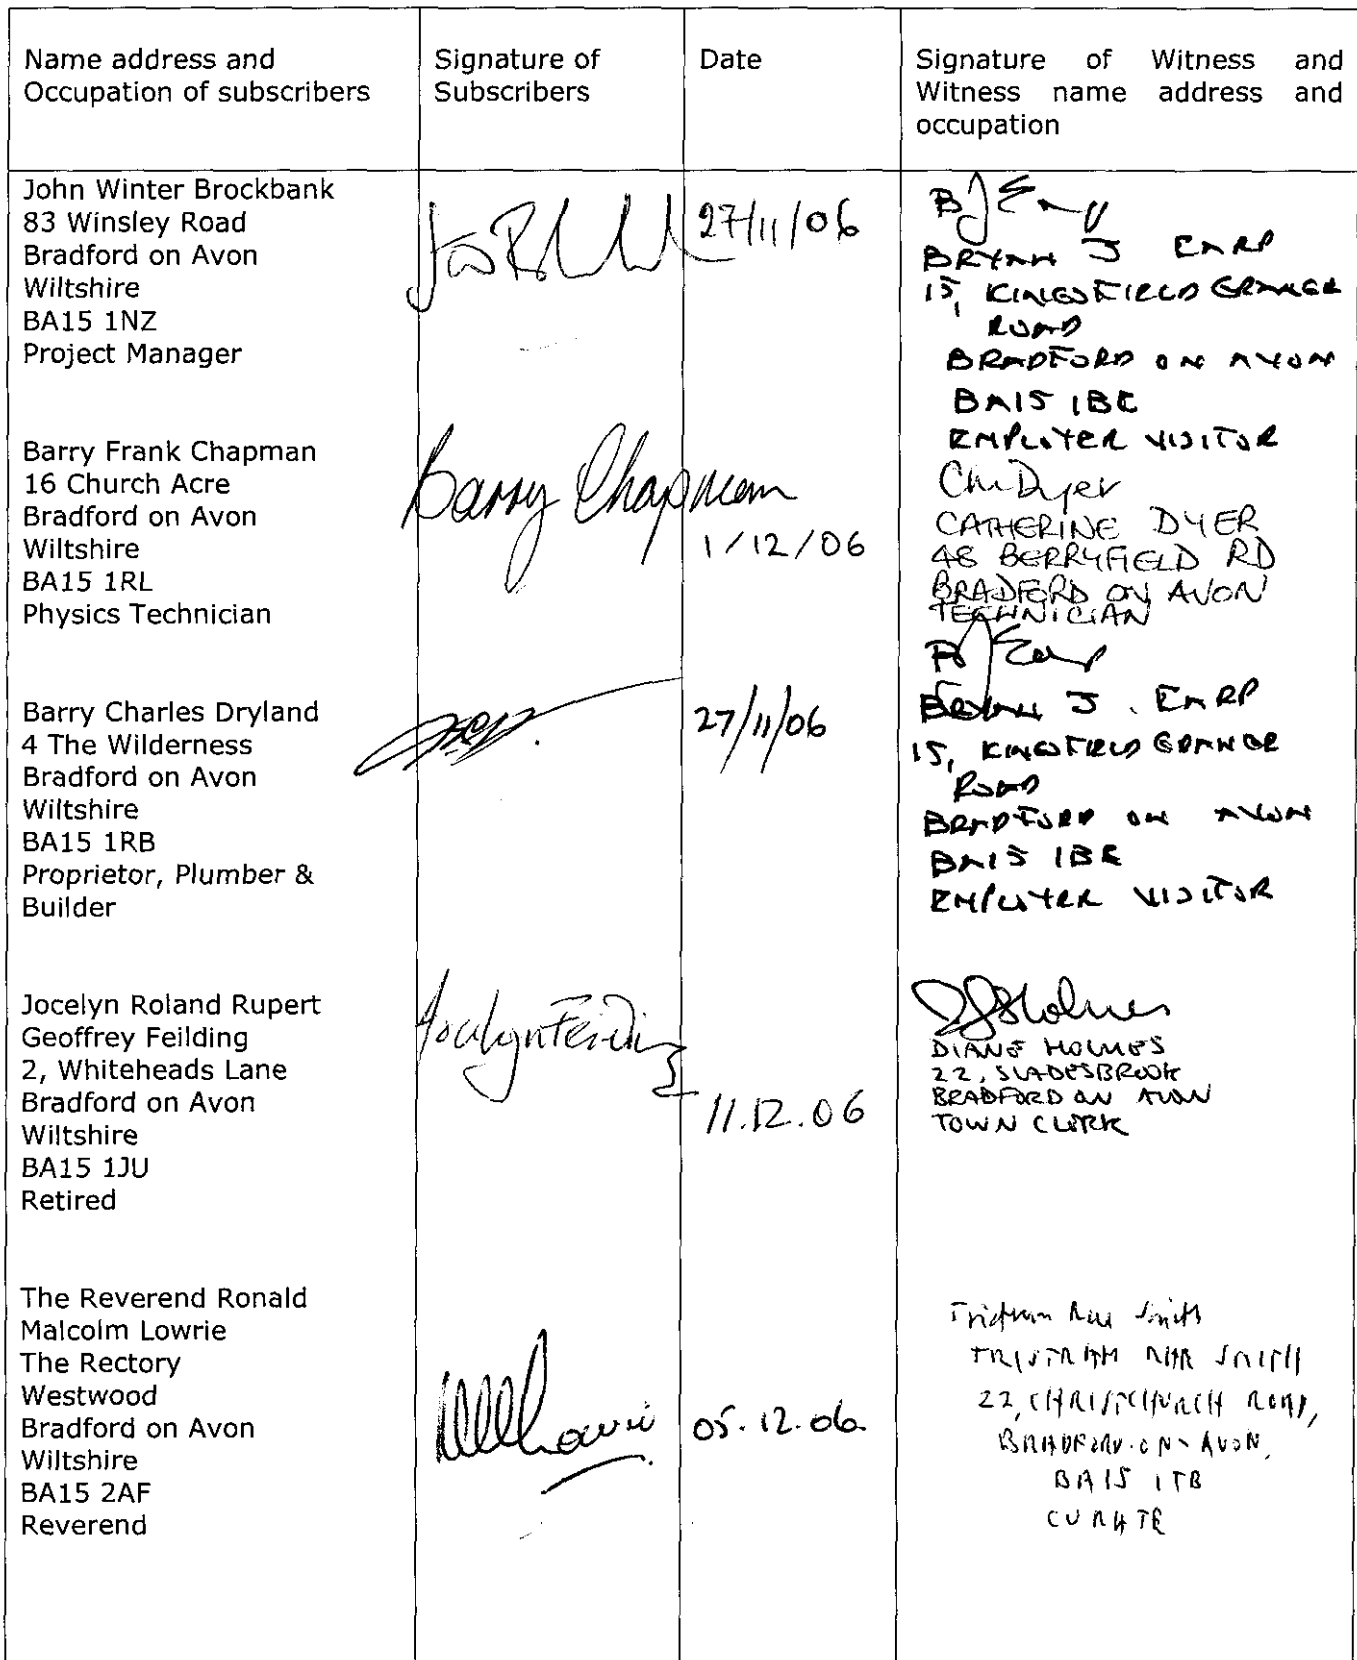 Name address and
Occupation of subscribers
Signature of
Subscribers
Date
Signature of Witness and
Witness name address and
occupation
John Winter Brockbank
83 Winsley Road
Bradford on Avon
Wiltshire
BA15 1NZ
Project Manager
27/11/06
BRYAN J EARP
15, KINGSFIELD GRANGE
ROAD
BRADFORD ON AVON
BA15 1BE
EMPLOYER VISITOR
Barry Frank Chapman
16 Church Acre
Bradford on Avon
Wiltshire
BA15 1RL
Physics Technician
Barry Chapman
1/12/06
CATHERINE DYER
48 BERRYFIELD RD
BRADFORD ON AVON
TECHNICIAN
Barry Charles Dryland
4 The Wilderness
Bradford on Avon
Wiltshire
BA15 1RB
Proprietor, Plumber &
Builder
27/11/06
BRYAN J. EARP
15, KINGSFIELD GRANGE
ROAD
BRADFORD ON AVON
BA15 1BE
EMPLOYER VISITOR
Jocelyn Roland Rupert
Geoffrey Feilding
2, Whiteheads Lane
Bradford on Avon
Wiltshire
BA15 1JU
Retired
Jocelyn Feilding
11.12.06
DIANE HOLMES
22, SLADESBROOK
BRADFORD ON AVON
TOWN CLERK
The Reverend Ronald
Malcolm Lowrie
The Rectory
Westwood
Bradford on Avon
Wiltshire
BA15 2AF
Reverend
05.12.06
Tristram Rae Smith
TRISTRAM RAE SMITH
22, CHRISTCHURCH ROAD,
BRADFORD-ON-AVON,
BA15 1TB
CURATE